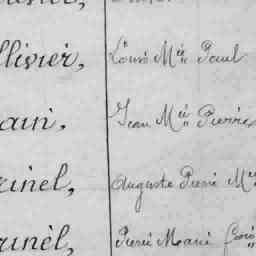 llivier, Louis M^ie Paul
ain, Jean M^ie Pierre
rinel, Auguste Pierre M^ie
runèl, Pierre Marie